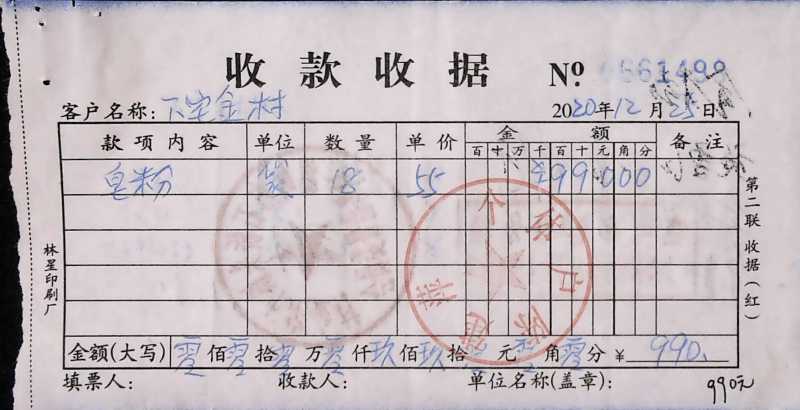 收款收据 № 6661499
客户名称：下字金村 2020年12月25日
款项内容 单位 数量 单价 金额 备注
百 十 万 千 百 十 元 角 分
皂粉 袋 18 55 ¥99000
第二联 收据（红）
林星印刷厂
金额(大写) 零佰零拾零万零仟玖佰玖拾零元零角零分 ¥ 990.
填票人： 收款人： 单位名称(盖章)：
990元
个体户